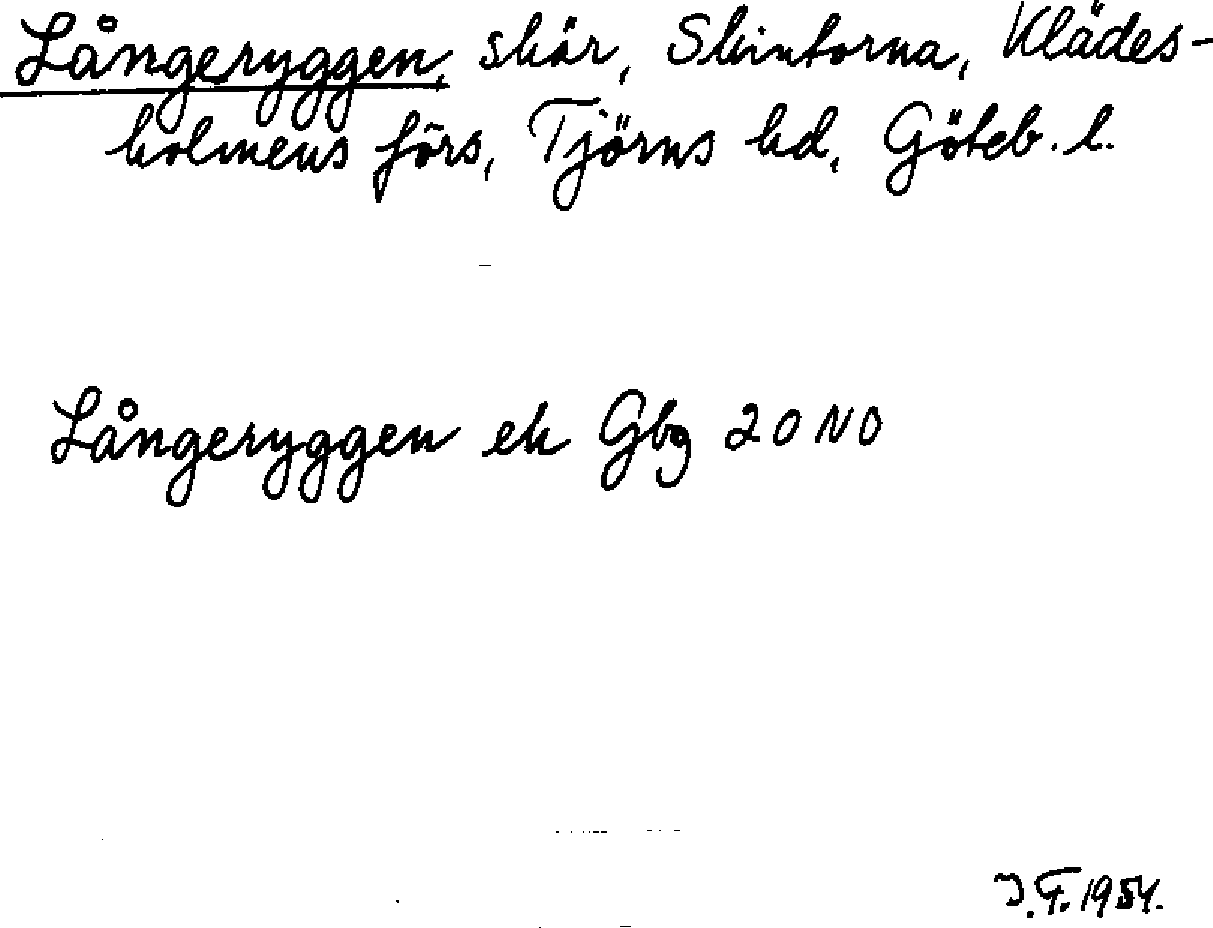 Långeryggen, skär, Skintorna, Klädes-
holmens förs, Tjörns hd, Göteb. l.
Långeryggen ek Gbg 20 NO
J.F. 1954.